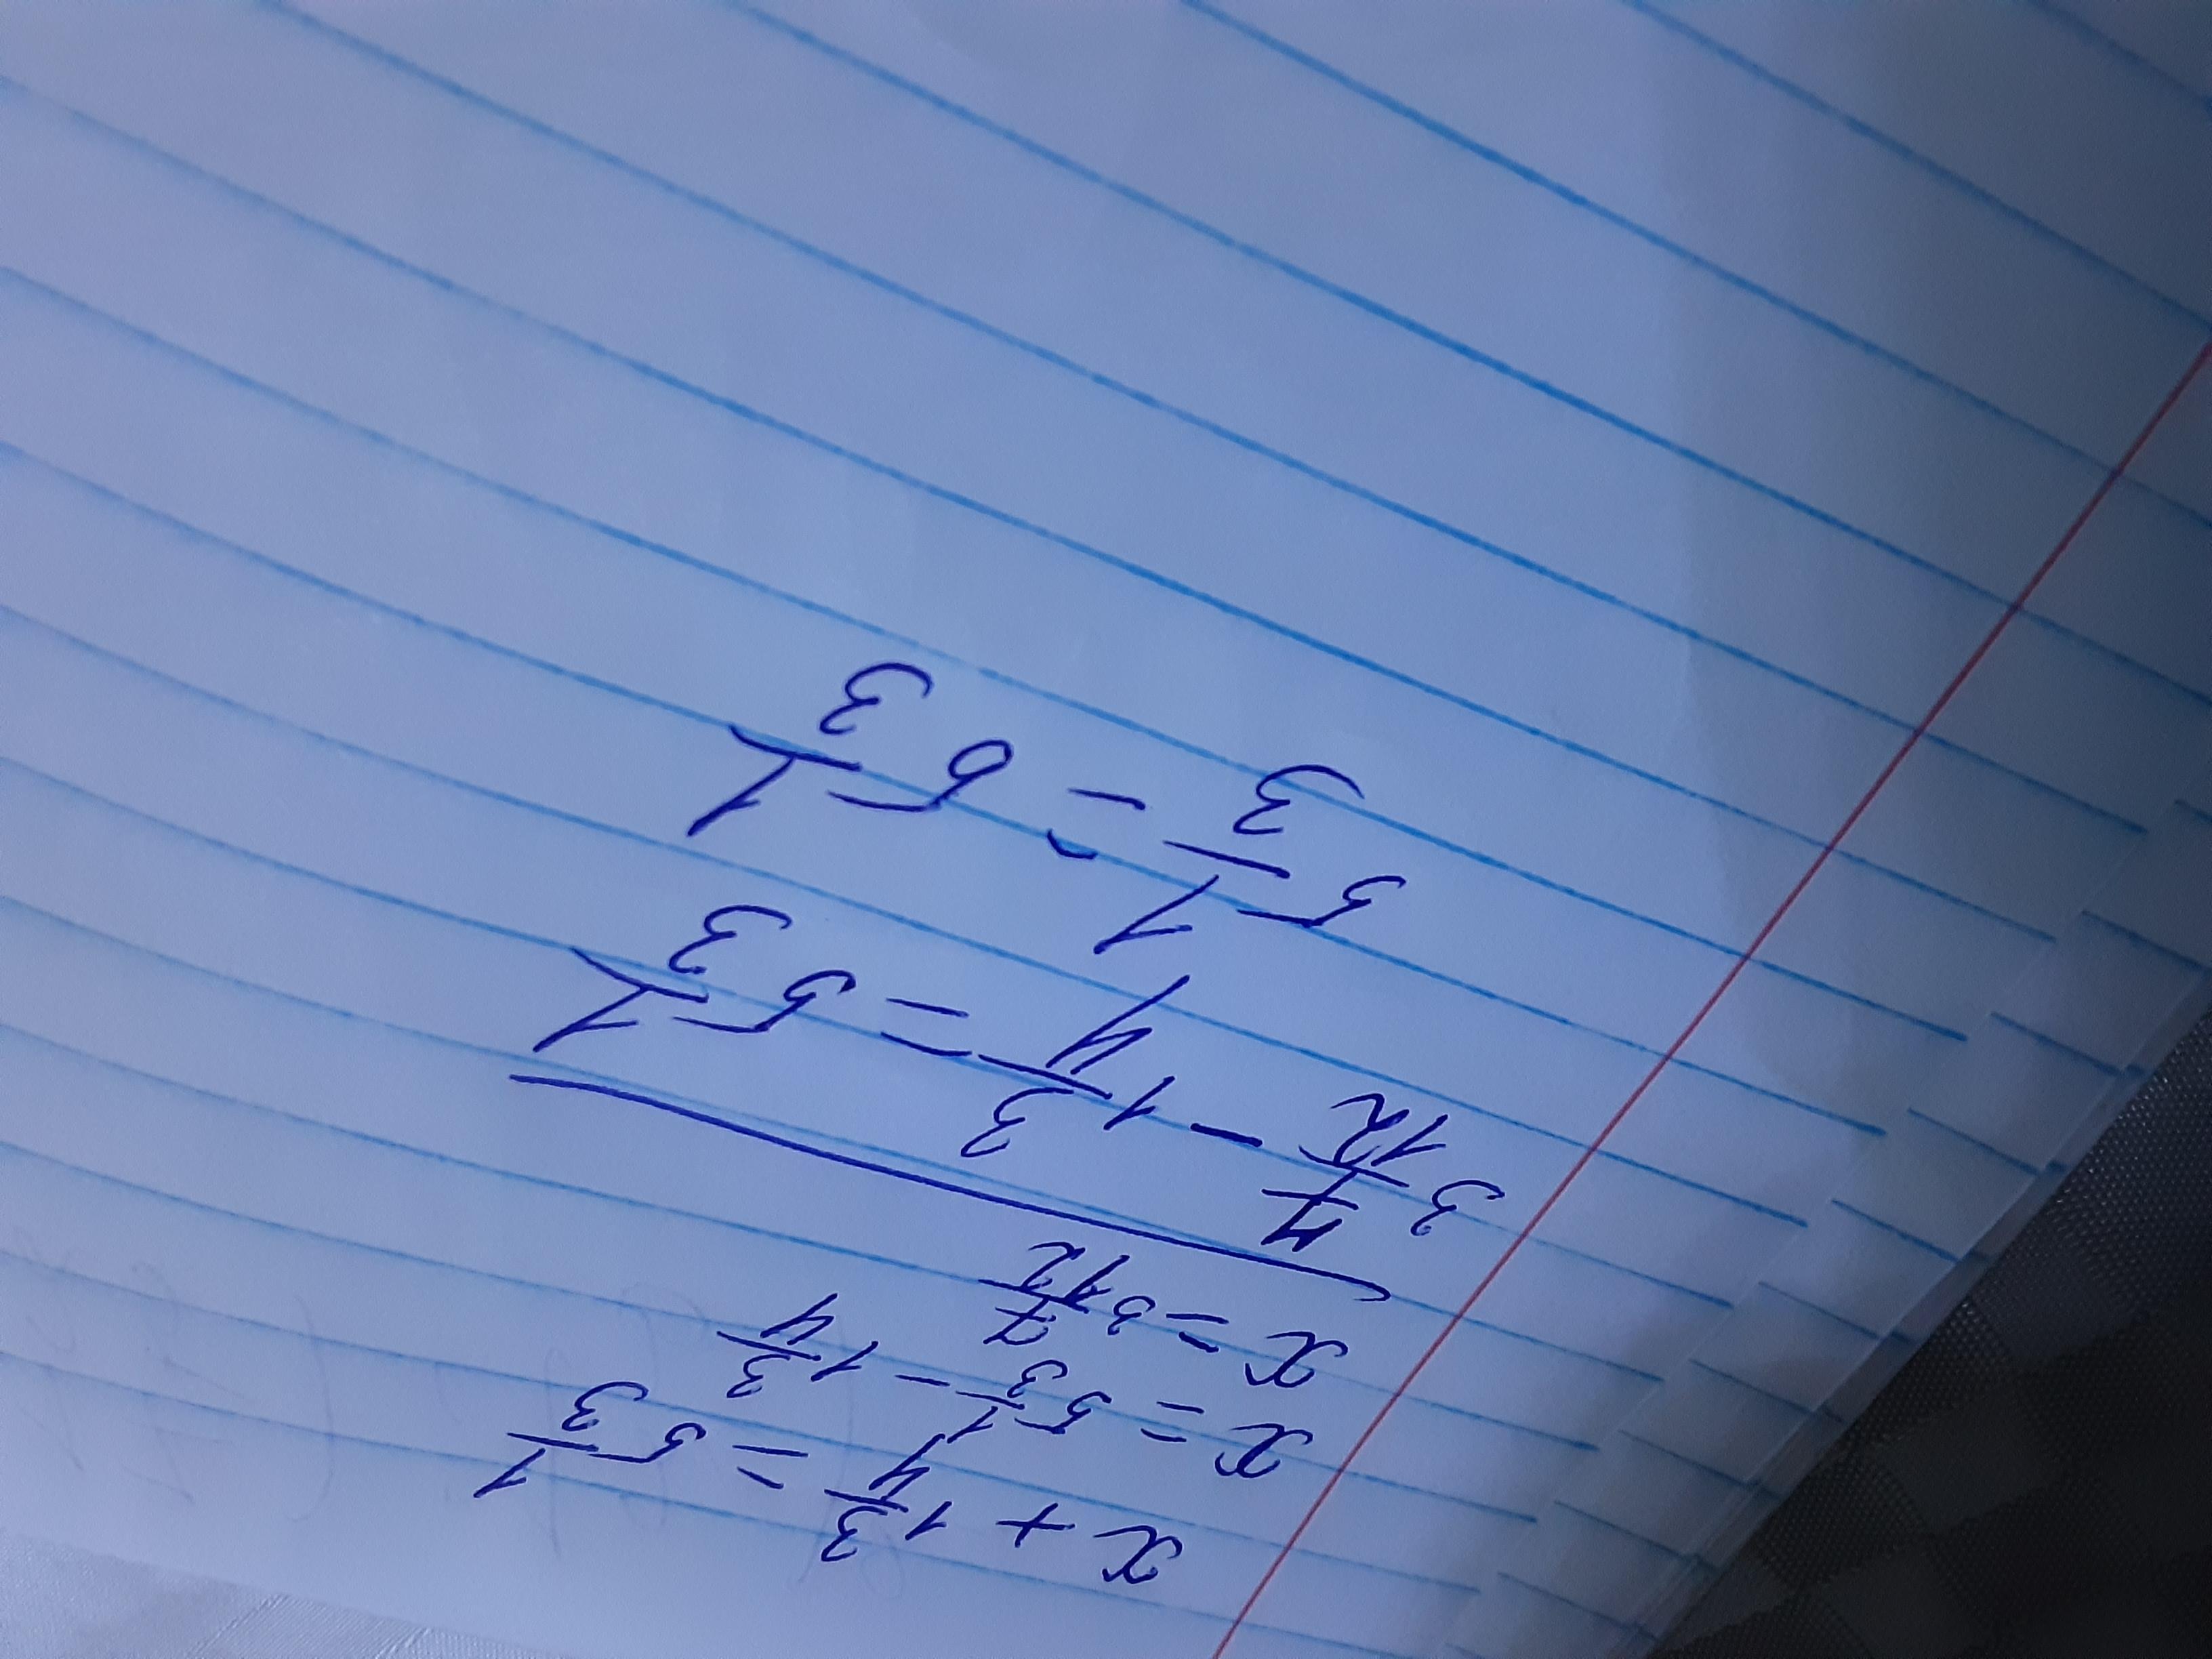 x + 1 3/4 = 5 1/3
x = 5 1/3 - 1 3/4
x = 3 7/12
3 7/12 - 1 3/4 = 5 1/3
5 1/3 = 5 1/3